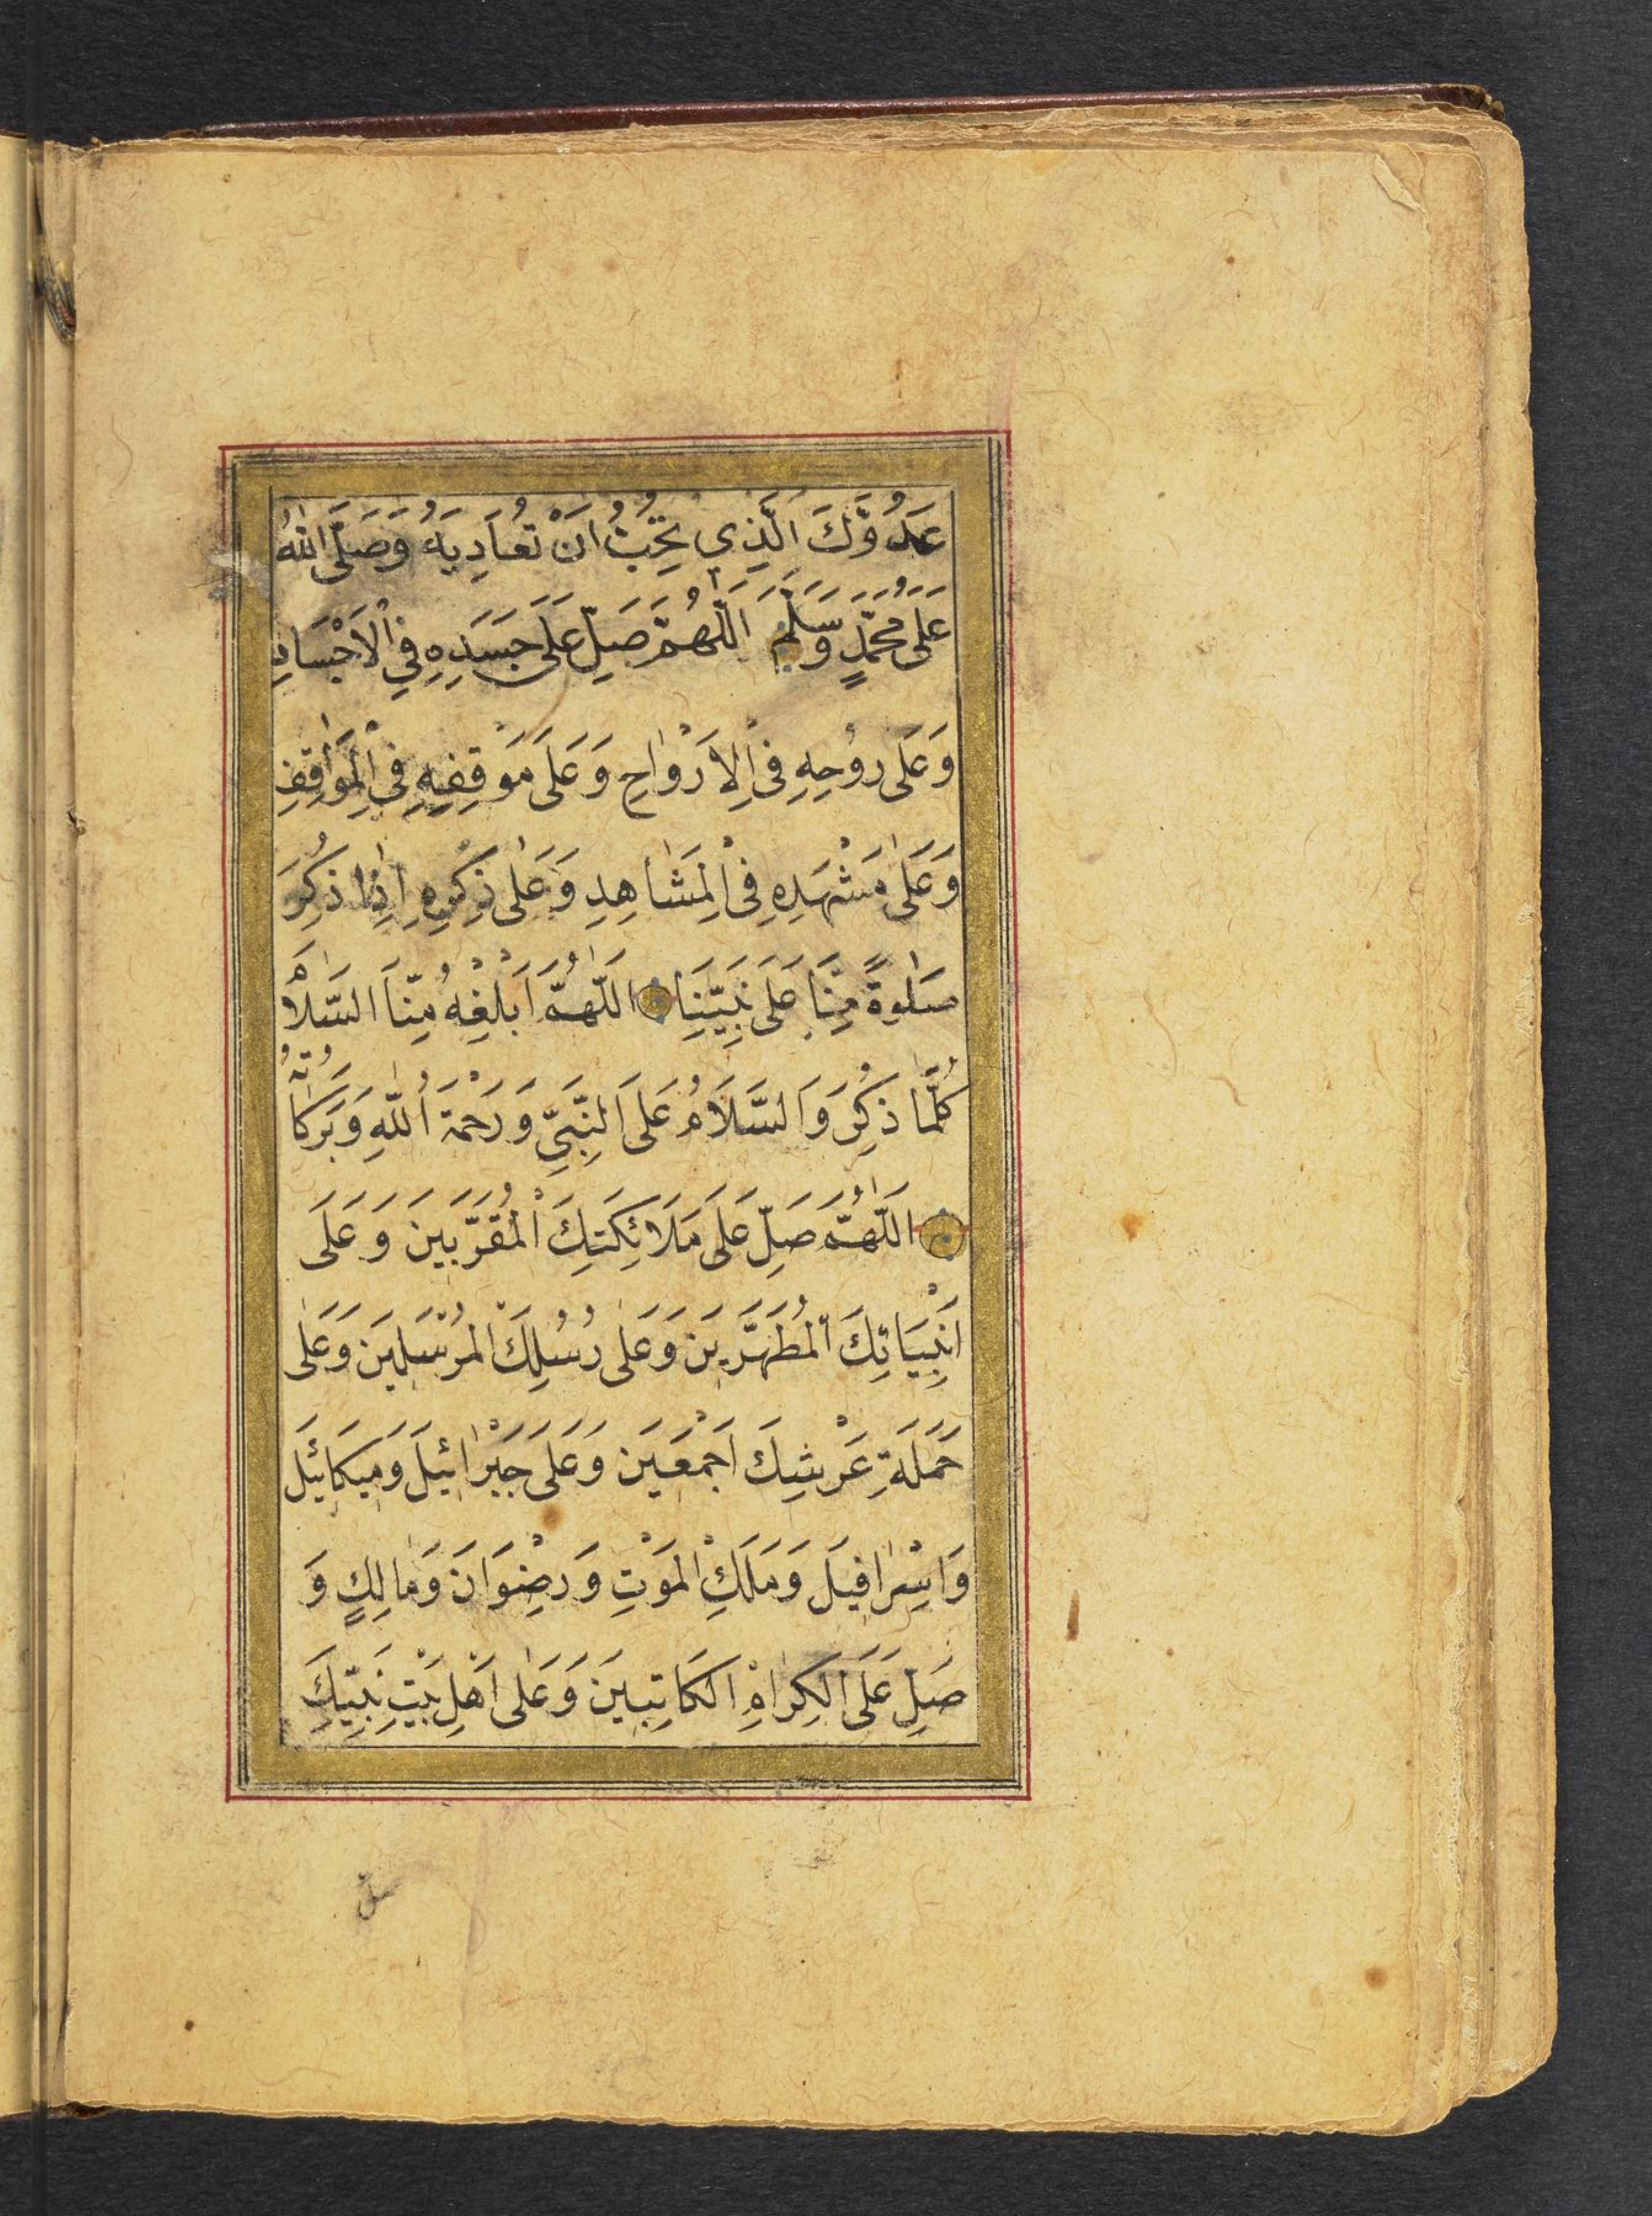 عَدُوَّكَ الَّذِي تُحِبُّ اَنْ تُعَادِيَهُ وَصَلَّى اللهُ
عَلَى مُحَمَّدٍ وَسَلَّمَ اَللّٰهُمَّ صَلِّ عَلَى جَسَدِهِ فِي الْاَجْسَادِ
وَعَلَى رُوْحِهِ فِي الْاَرْوَاحِ وَعَلَى مَوْقِفِهِ فِي الْمَوَاقِفِ
وَعَلٰى مَشْهَدِهِ فِي الْمَشَاهِدِ وَعَلٰى ذِكْرِهِ اِذَا ذُكِرَ
صَلٰوةً مِنَّا عَلَى نَبِيِّنَا اَللّٰهُمَّ اَبْلِغْهُ مِنَّا السَّلَامَ
كُلَّمَا ذُكِرَ وَالسَّلَامُ عَلَى النَّبِيِّ وَرَحْمَةُ اللّٰهِ وَبَرَكَاتُهُ
اَللّٰهُمَّ صَلِّ عَلَى مَلَائِكَتِكَ الْمُقَرَّبِينَ وَعَلَى
اَنْبِيَائِكَ الْمُطَهَّرِينَ وَعَلٰى رُسُلِكَ الْمُرْسَلِينَ وَعَلٰى
حَمَلَةِ عَرْشِكَ اَجْمَعِينَ وَعَلَى جَبْرَائِيلَ وَمِيكَائِيلَ
وَاِسْرَافِيلَ وَمَلَكِ الْمَوْتِ وَرِضْوَانَ وَمَالِكٍ وَ
صَلِّ عَلَى الْكِرَامِ الْكَاتِبِينَ وَعَلٰى اَهْلِ بَيْتِ نَبِيِّكَ